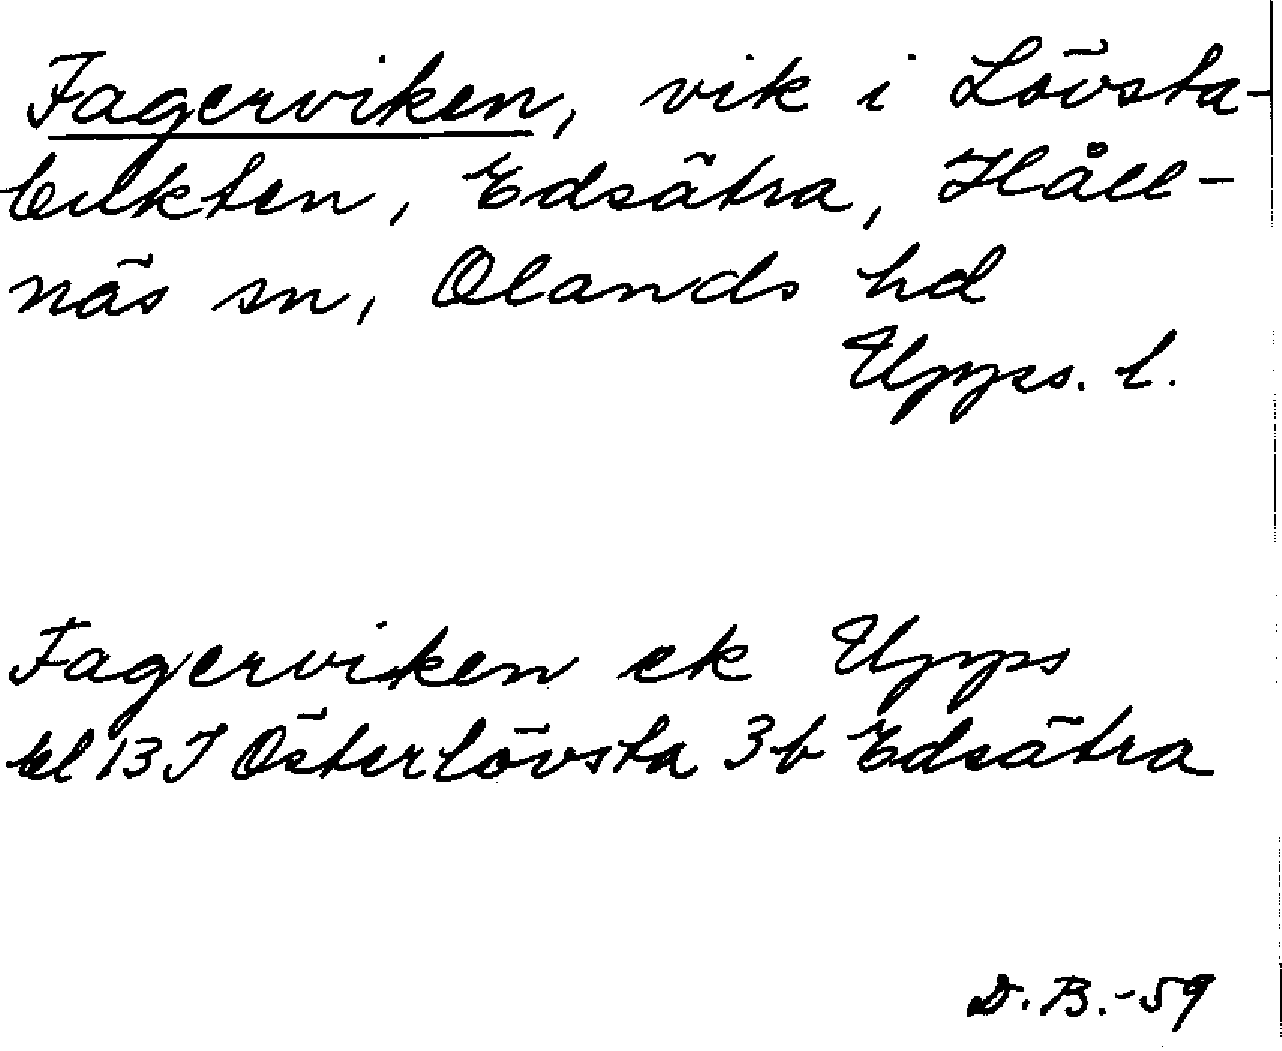 Fagerviken, vik i Lövsta-
bukten, Edsätra, Håll-
näs sn, Olands hd
Upps. l.
Fagerviken ek Upps
bl 13 I Österlövsta 3b Edsätra
D.B.-59